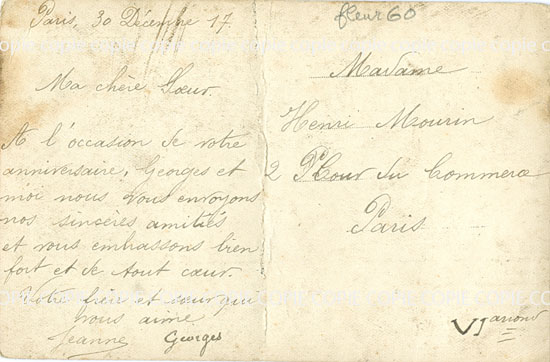 Paris, 30 Décembre 17.
Ma chère Sœur.
A l'occasion de votre
anniversaire, Georges et
moi nous vous envoyons
nos sincères amitiés
et vous embrassons bien
fort et de tout cœur.
Votre frère et sœur qui
vous aime
Jeanne Georges
fleur60
Madame
Henri Mourin
2 Pge Cour du Commerce
Paris
VI arrond